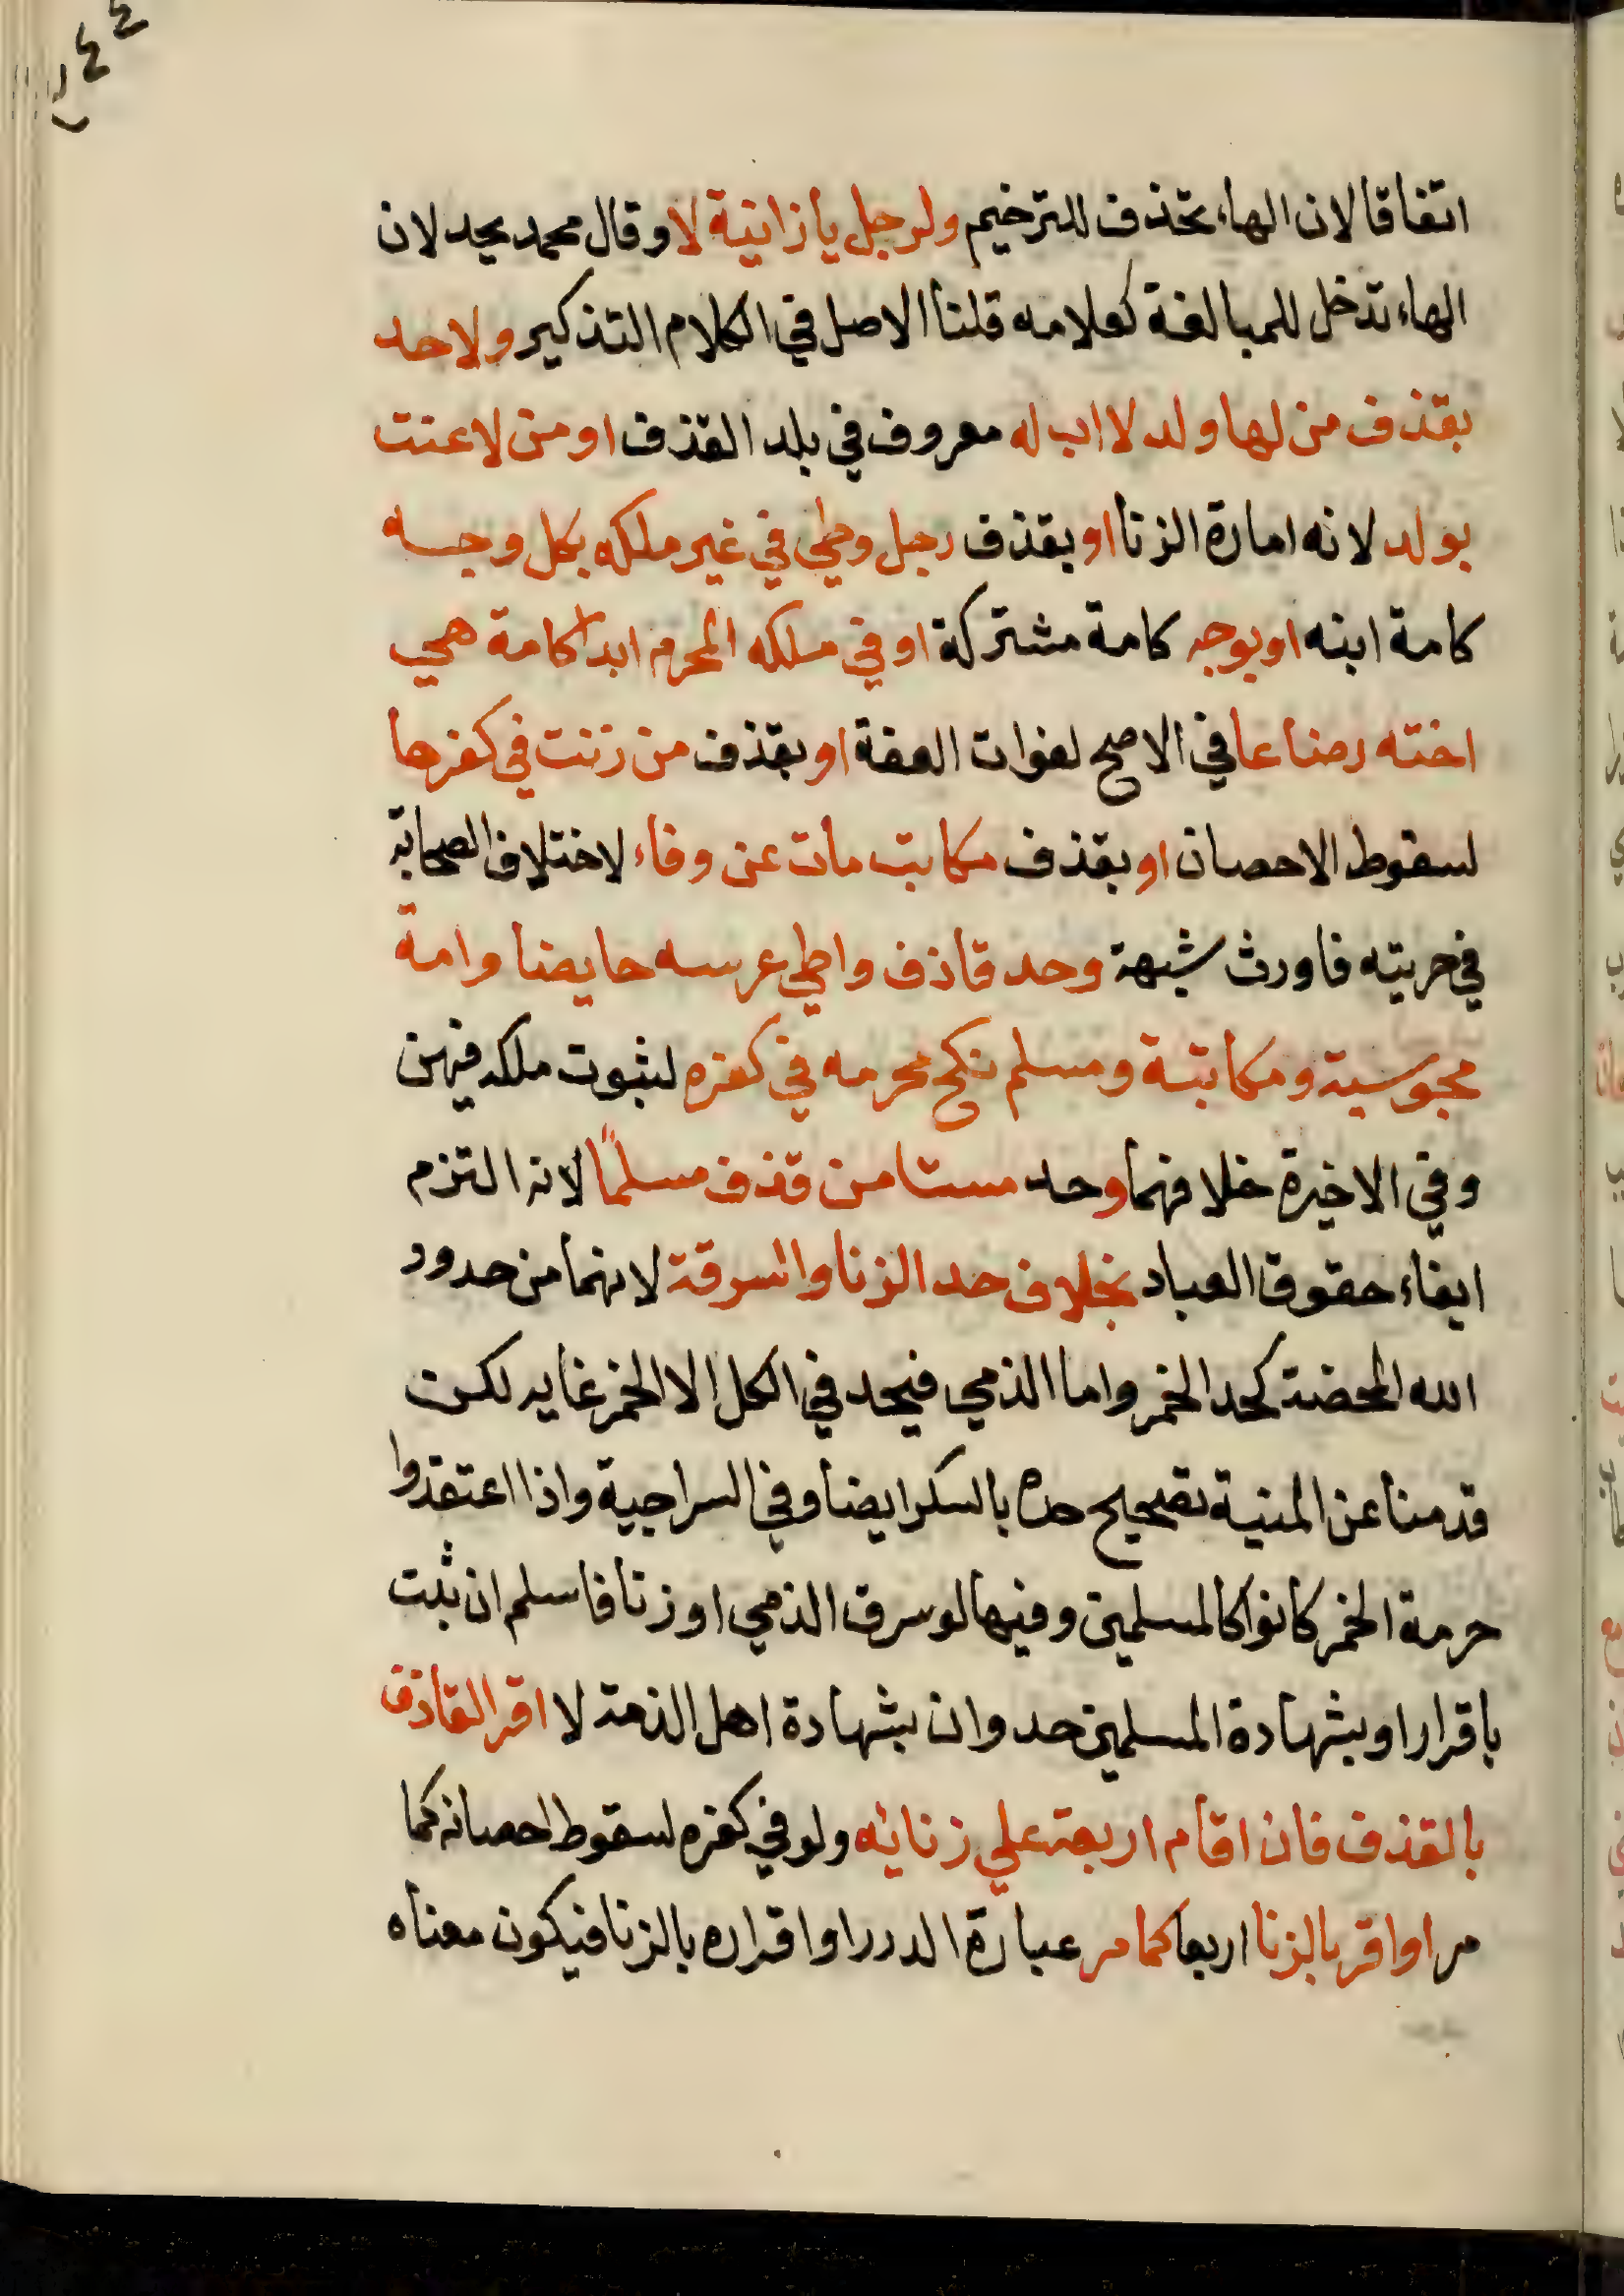 اتفاقا لان الهاء تحذف للترخيم ولرجل يا زانية لا وقال محمد يحد لان
الهاء تدخل للمبالغة كعلامه قلنا الاصل في الكلام التذكير ولا حد
بقذف من لها ولد لا اب له معروف في بلد القذف او من لاعنت
بولد لانه امارة الزنا او بقذف رجل وطي في غير ملكه بكل وجه
كامة ابنه او بوجه كامة مشتركة او في ملكه المحرم ابدا كامة هي
اخته رضاعا في الاصح لفوات العفة او بقذف من زنت في كفرها
لسقوط الاحصان او بقذف مكاتب مات عن وفاء لاختلاف الصحابة
في حريته فاورث شبهة وحد قاذف واطي عرسه حايضا وامة
مجوسية ومكاتبة ومسلم نكح محرمه في كفره لثبوت ملكه فيهن
وفي الاخيرة خلافهما وحد مستامن قذف مسلمًا لانه التزم
ايفاء حقوق العباد بخلاف حد الزنا والسرقة لانهما من حدود
الله المحضة كحد الخمر واما الذمي فيحد في الكل الا الخمر غايه لكن
قدمنا عن المنية تصحيح حده بالسكر ايضا وفي السراجية واذا اعتقدوا
حرمة الخمر كانوا كالمسلمين وفيها لو سرق الذمي او زنا فاسلم ان ثبت
باقرار او بشهادة المسلمين حد وان بشهادة اهل الذمة لا اقر القاذف
بالقذف فان اقام اربعة علي زنايه ولو في كفره لسقوط احصانه كما
مر او اقر بالزنا اربعا كما مر عبارة الدرر او اقراره بالزنا فيكون معناه